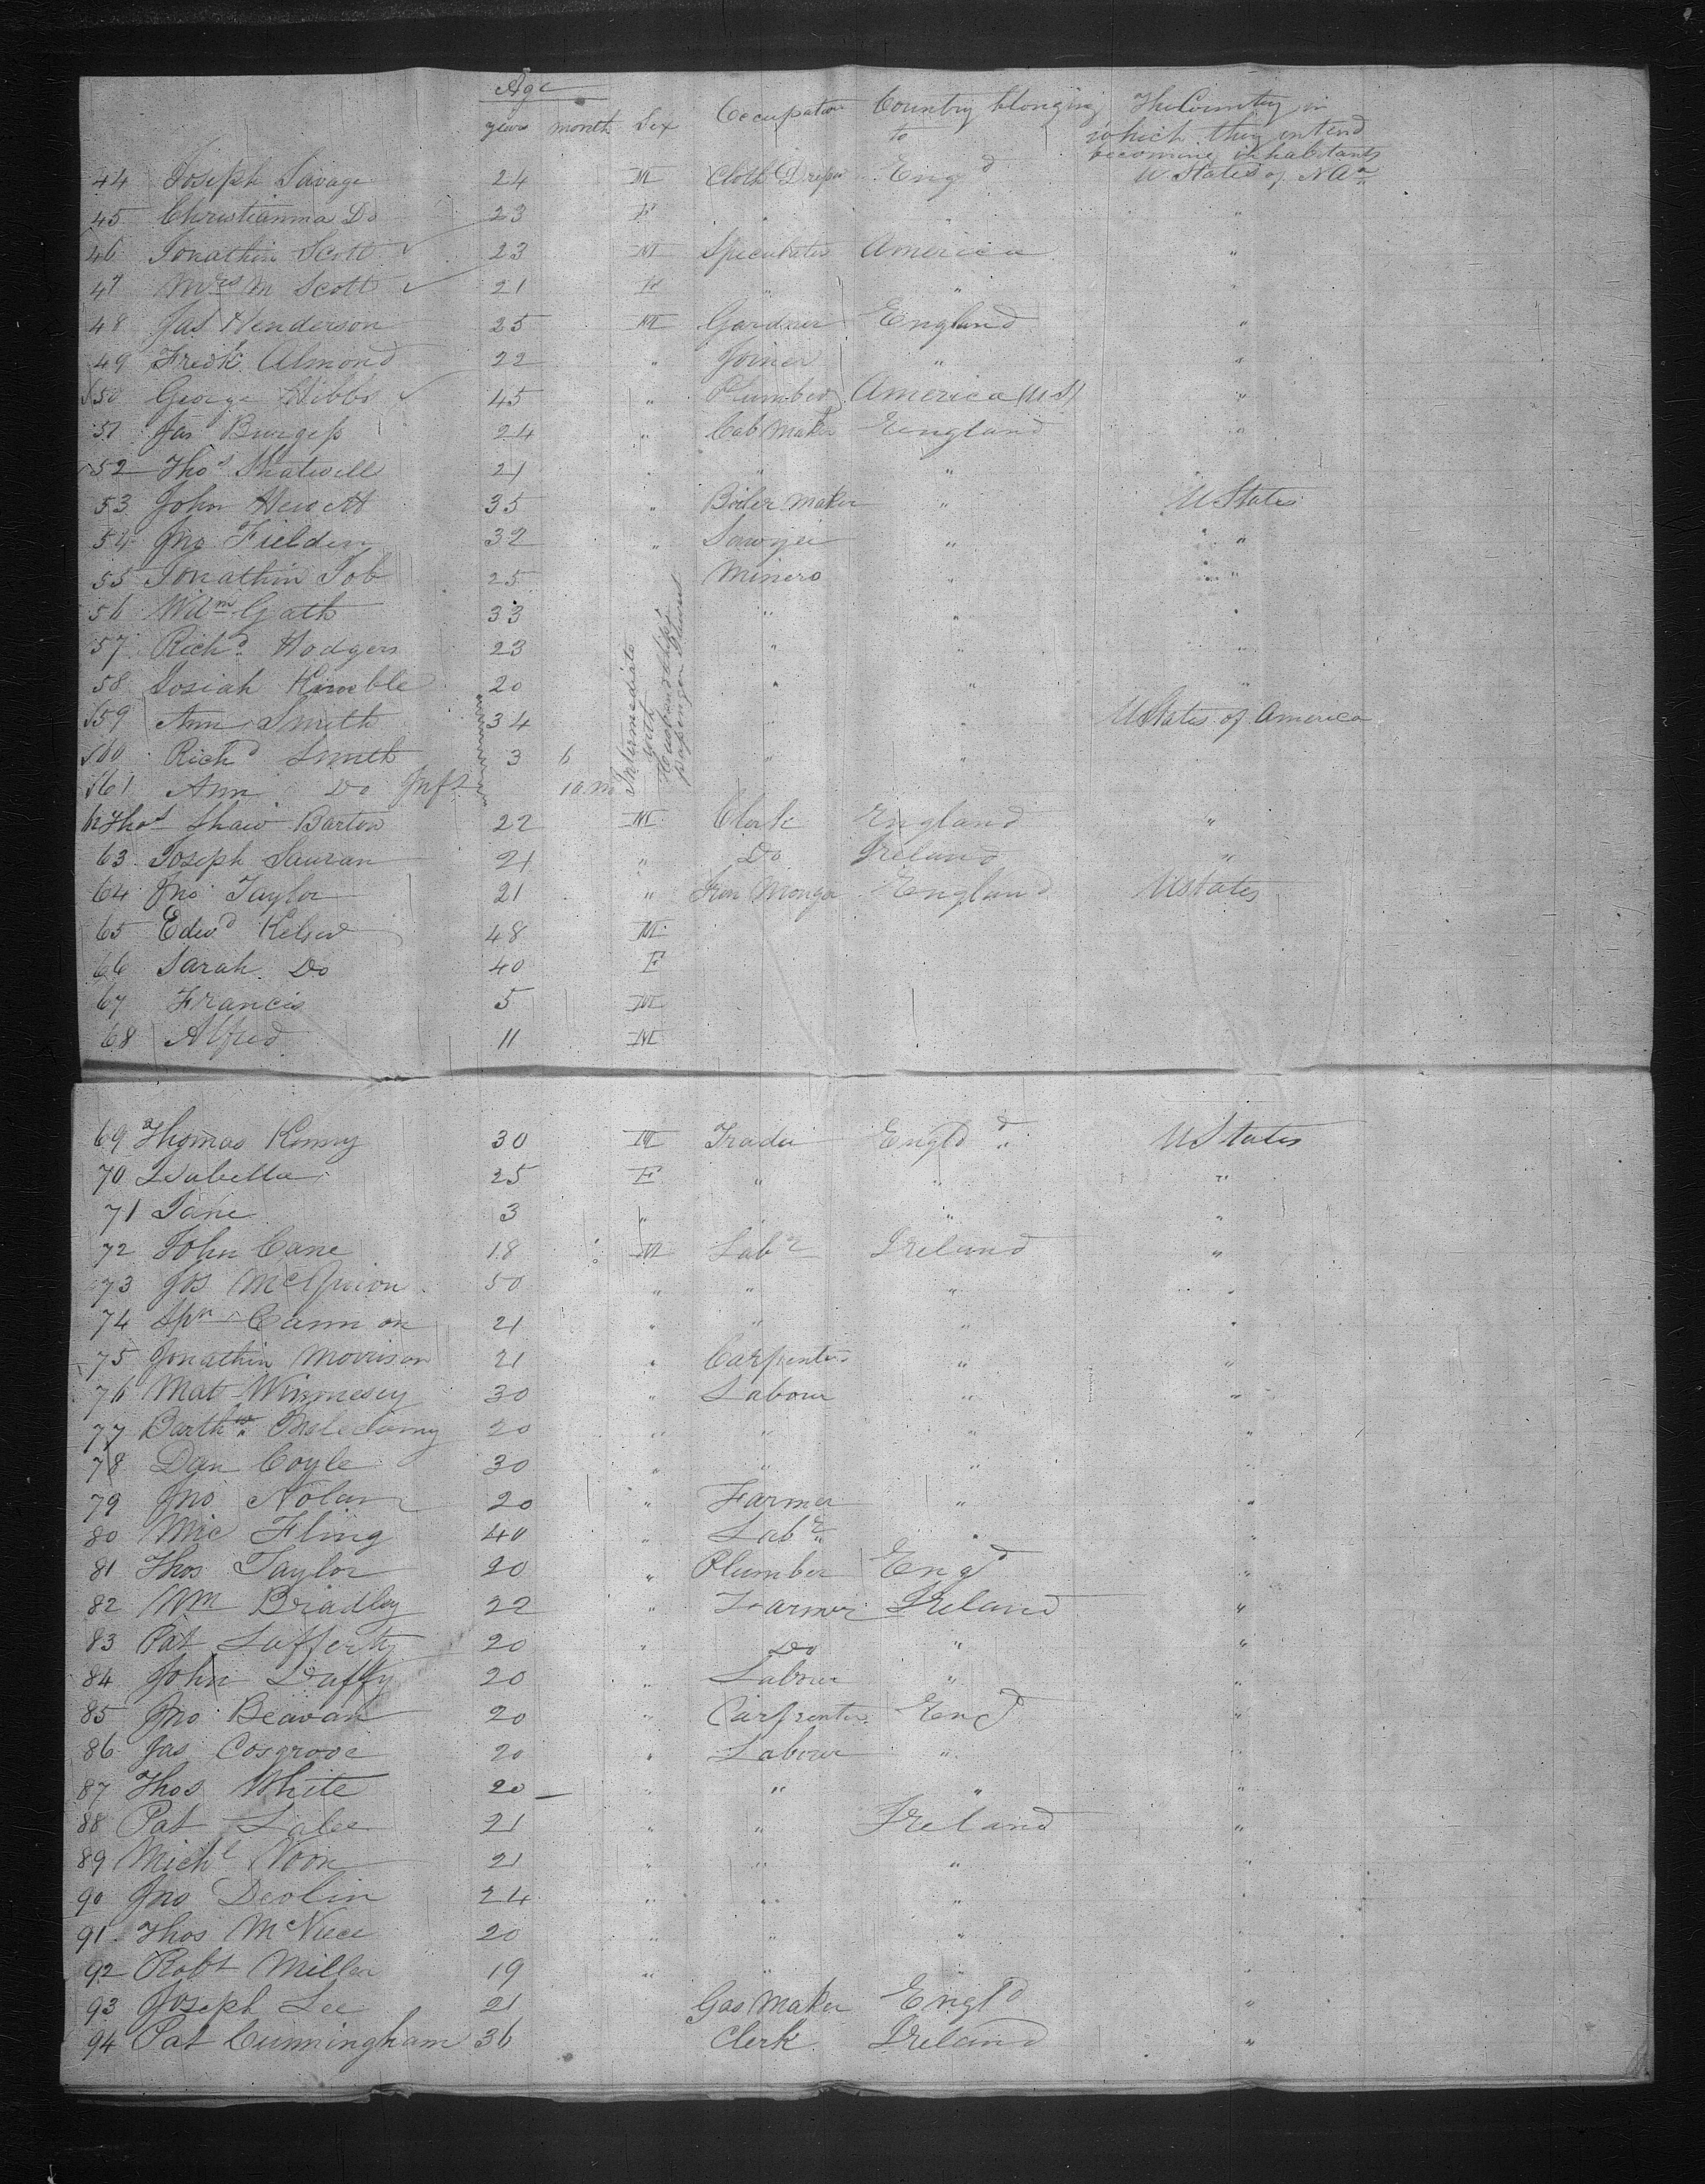 Age
years month Sex Occupation Country belonging to The Country in which they intend becoming inhabitants
44 Joseph Savage 24 M Cloth Draper Eng^d U. States of N A^a
45 Christianna Do 23 F " " "
46 Jonathin Scott 23 M Speculator America "
47 M^rs M Scott 21 F " " "
48 Jas Henderson 25 M Gardner England "
49 Fredk Almond 22 " Joiner " "
50 George Hibbs 45 " Plumber America (U S) "
51 Jas Burgess 24 " Cab Maker England "
52 Tho^s Shatwell 21 " " "
53 John Hewett 35 " Boiler Maker " U States
54 Jno Fielden 32 " Sawyer " "
55 Jonathin Job 25 Miners " "
56 Will^m Gath 33 " " "
57 Rich^d Hodgers 23 " " "
58 Josiah Kimble 20 " " "
59 Ann Smith 34 " " U States of America
60 Rich^d Smith 3 6 " "
61 Ann Do Inf^t 10 m
Intermediate with Husband passenger
62 Tho^s Shaw Barton 22 M Clerk England "
63 Joseph Sauran 21 " Do Ireland "
64 Jno Taylor 21 " Iron Monger England U States
65 Edw^d Kelsed 48 M
66 Sarah Do 40 F
67 Francis 5 M
68 Alfred 11 M
69 Thomas Kenny 30 M Trader Engl^d U States
70 Isabella 25 F " " "
71 Jane 3 " " " "
72 John Cane 18 M Lab^r Ireland "
73 Jos 50 " " " "
74 Cannon 21 " " " "
75 Jonathin Morrison 21 " Carpenter " "
76 Mat Winnesey 30 " Labour " "
77 Barth^w 20 " " " "
78 Dan Coyle 30 " " " "
79 Jno Nolan 20 " Farmer " "
80 Mic Fling 40 " Lab^r " "
81 Thos Taylor 20 " Plumber Eng^d "
82 Wm Bradley 22 " Farmer Ireland "
83 Pat Lafferty 20 " Do " "
84 John Duffy 20 " Labour " "
85 Jno Beavan 20 " Carpenter Eng^d "
86 Jas Cosgrove 20 " Labour " "
87 Thos White 20 " " " "
88 Pat 21 " " Ireland "
89 Mich^l Noon 21 " " " "
90 Jno Devlin 24 " " " "
91 Thos McNiece 20 " " " "
92 Robt Miller 19 " " " "
93 Joseph Lee 21 Gas Maker Engl^d "
94 Pat Cunningham 36 Clerk Ireland "